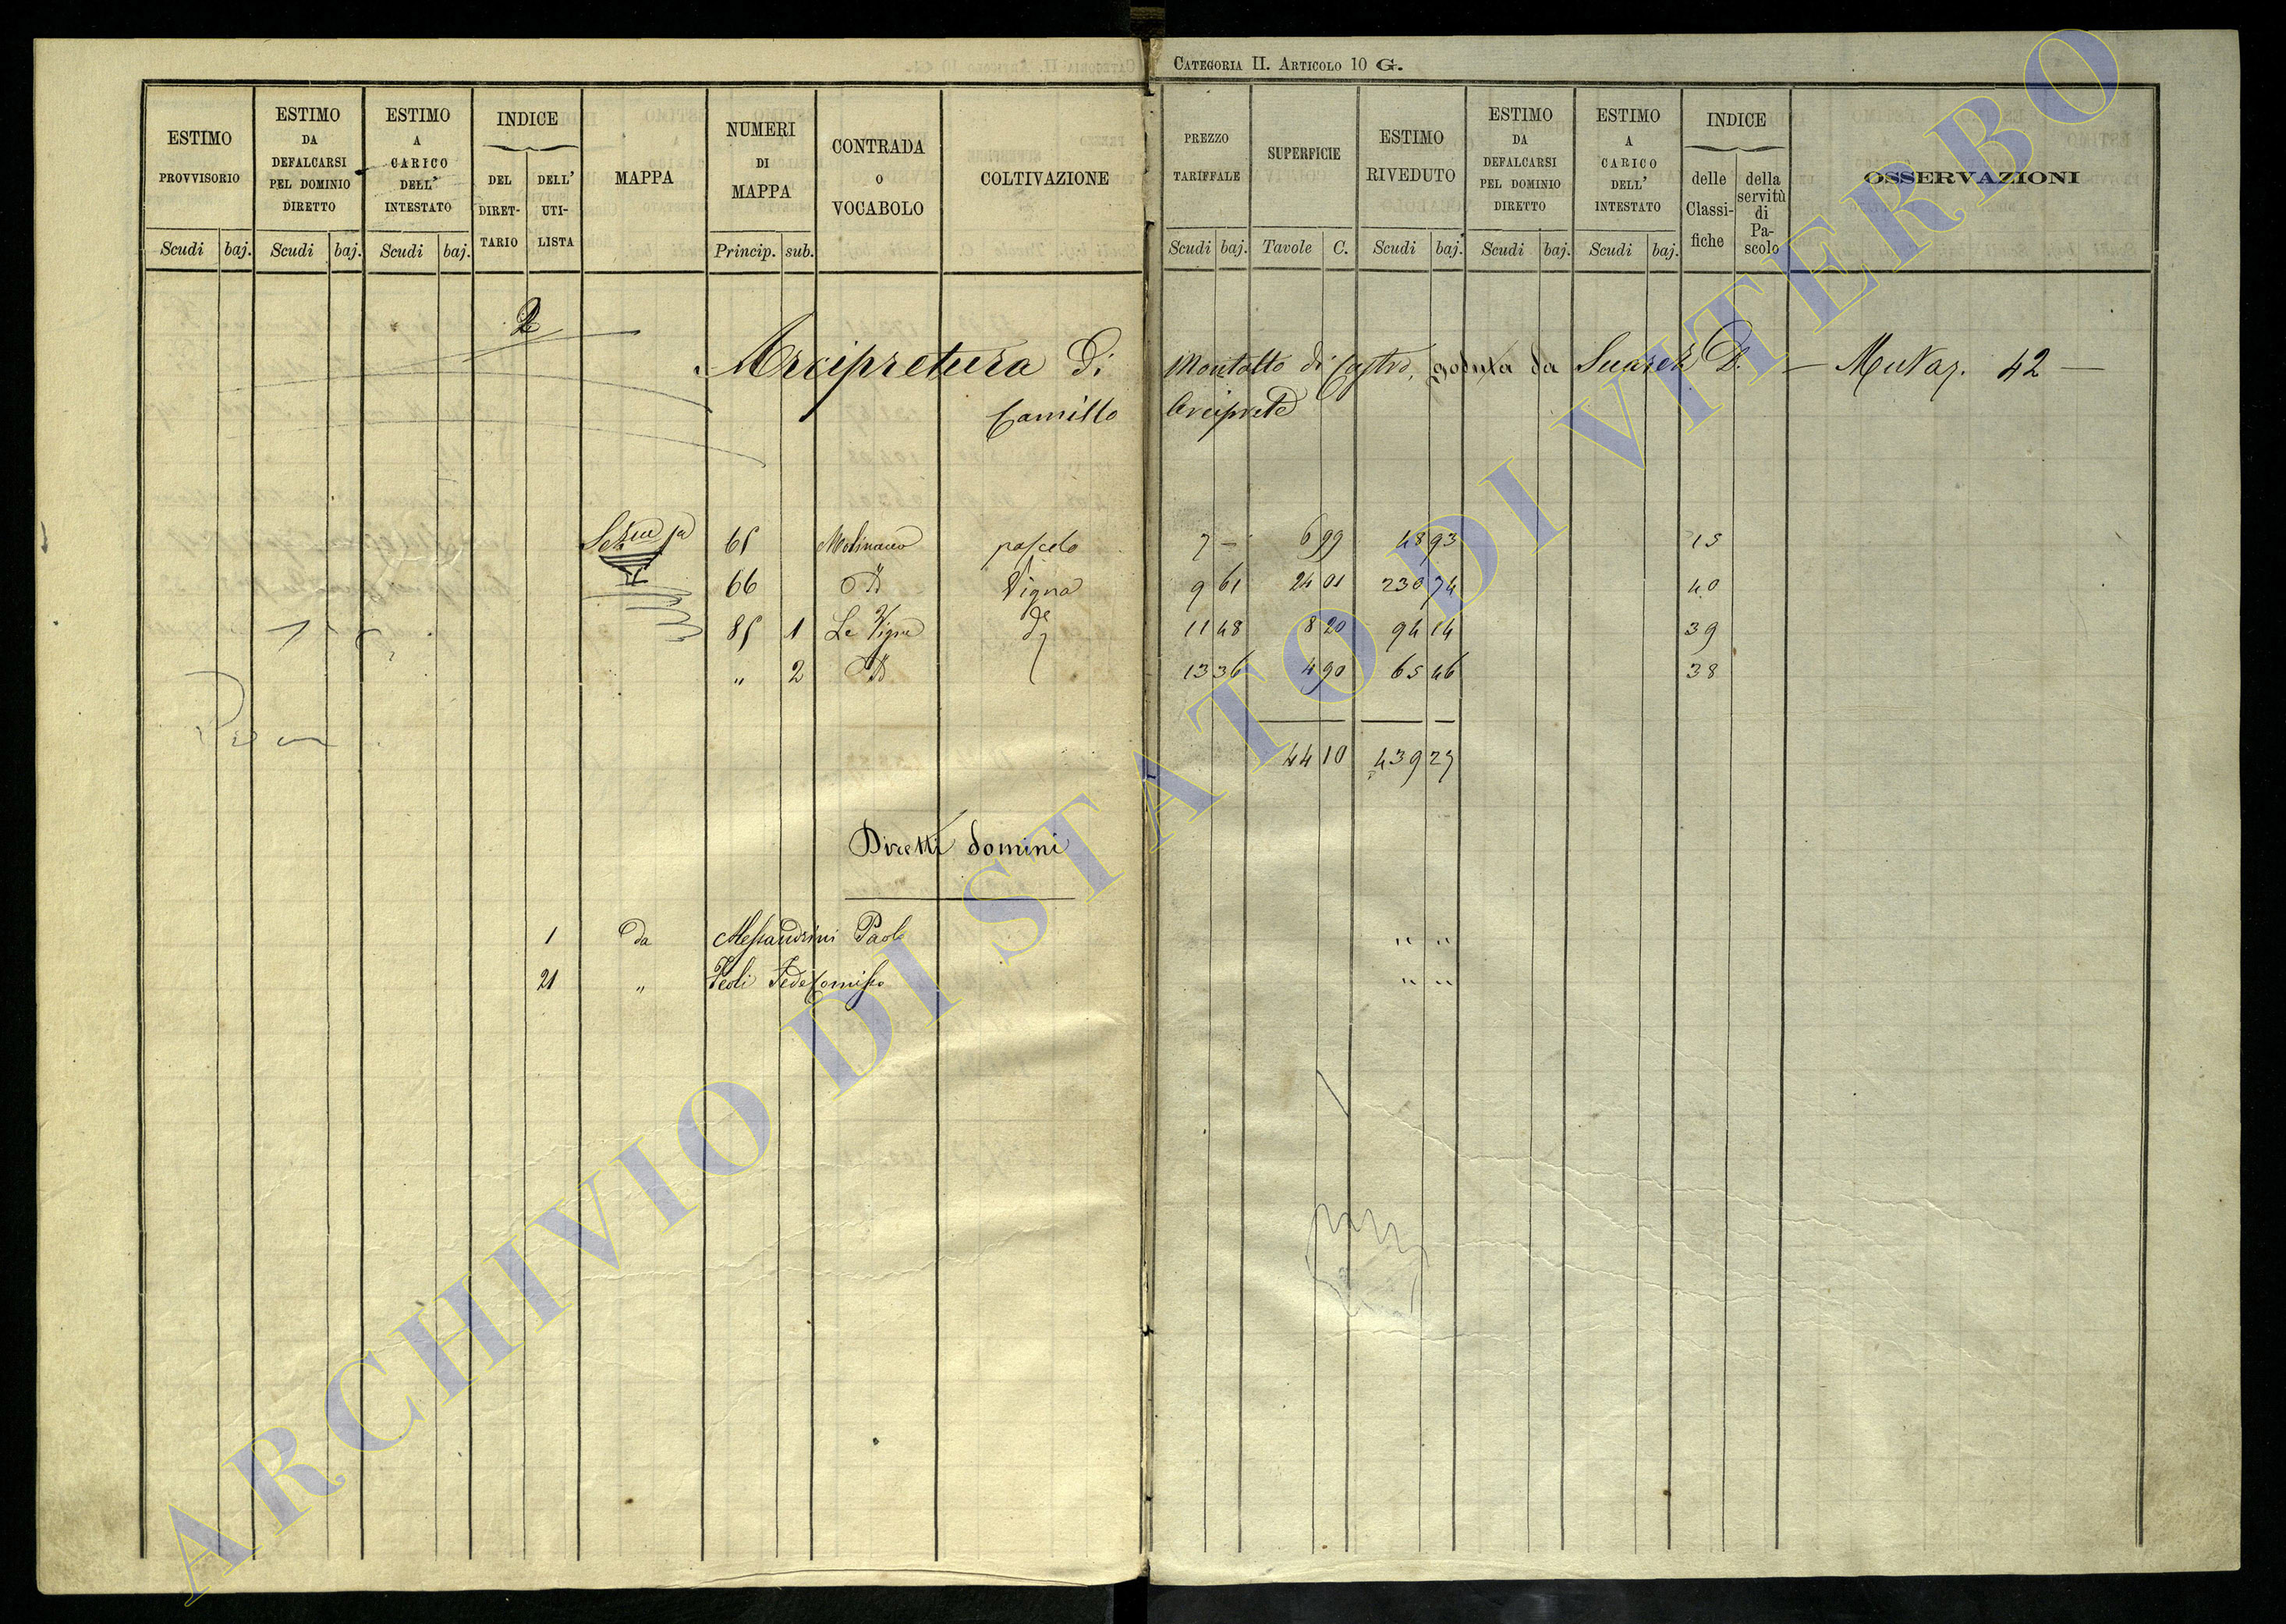 CATEGORIA II. ARTICOLO 10 G.
ESTIMO PROVVISORIO Scudi baj.
ESTIMO DA DEFALCARSI PEL DOMINIO DIRETTO Scudi baj.
ESTIMO A CARICO DELL' INTESTATO Scudi baj.
INDICE DEL DIRETTARIO DELL' UTILISTA
MAPPA
NUMERI DI MAPPA Princip. sub.
CONTRADA O VOCABOLO
COLTIVAZIONE
PREZZO TARIFFALE Scudi baj.
SUPERFICIE Tavole C.
ESTIMO RIVEDUTO Scudi baj.
ESTIMO DA DEFALCARSI PEL DOMINIO DIRETTO Scudi baj.
ESTIMO A CARICO DELL' INTESTATO Scudi baj.
INDICE delle Classifiche della servitù di Pascolo
OSSERVAZIONI
2
Arcipretura di Montalto di Castro, goduta da Suarez D. — Mutaz. 42 —
Camillo Arciprete
Sezne 1a 65 Molinaccio pascolo 7 — 6 99 48 93 15
66 Vigna 9 61 24 01 230 74 40
85 1 Le Vigne 11 48 8 20 94 14 39
" 2 13 36 4 90 65 46 38
44 10 439 27
Diretti domini
1 da Alessandrini Paolo " "
21 " Feoli Fedecomisso " "
ARCHIVIO DI STATO DI VITERBO